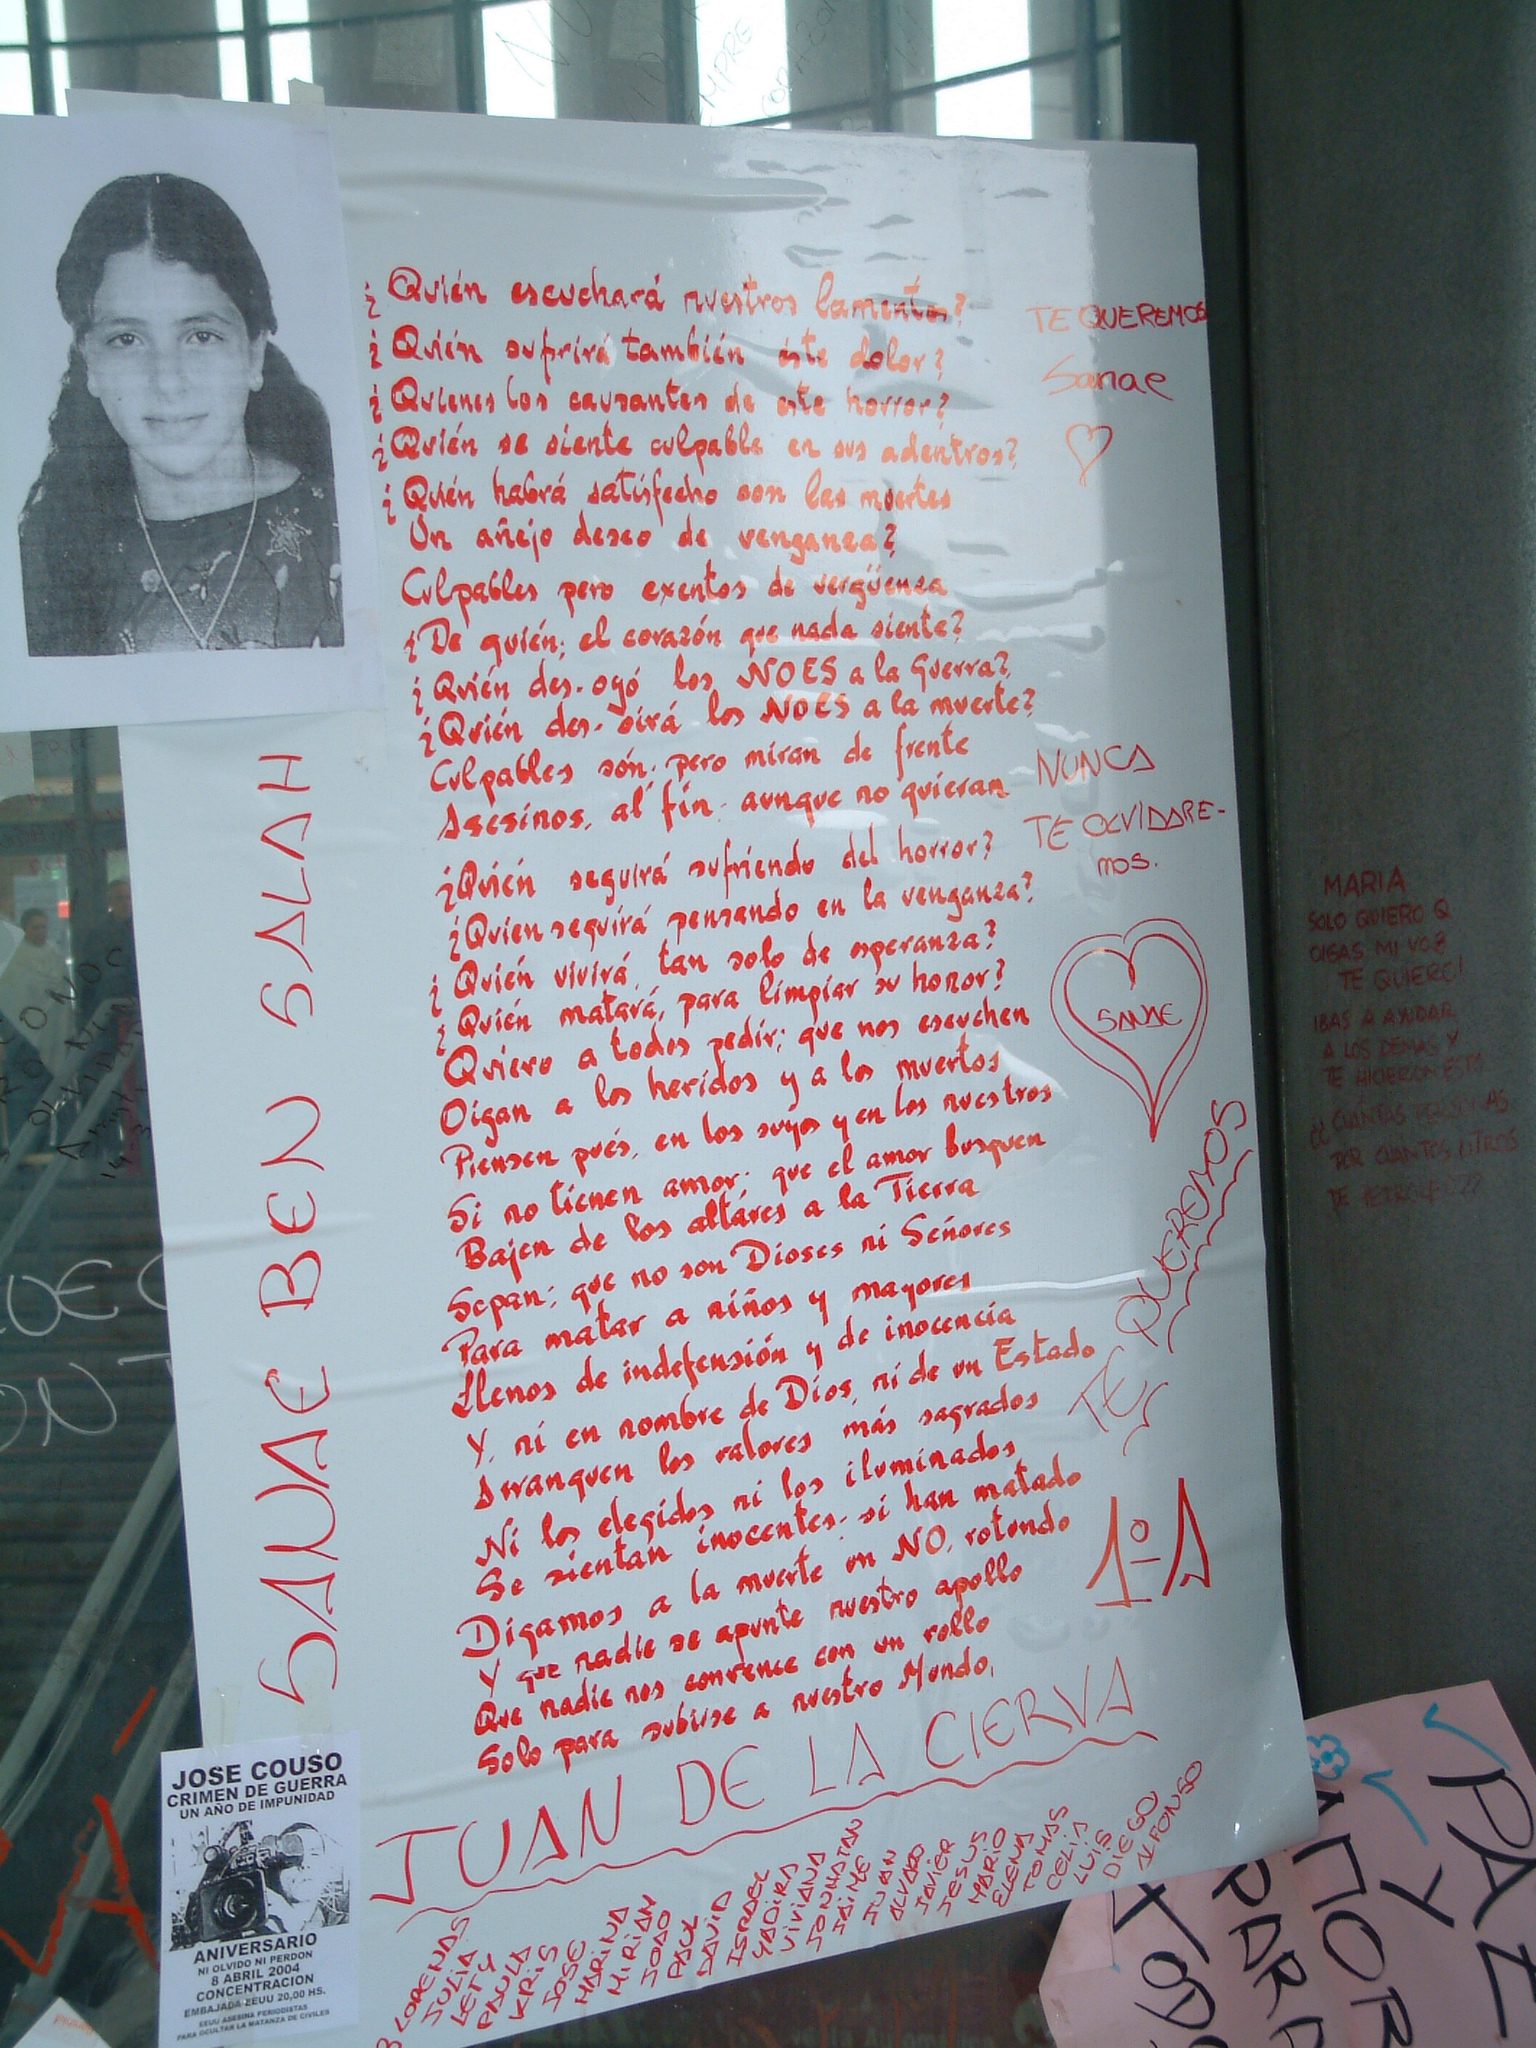 ¿Quién escuchará nuestros lamentos?
¿Quién sufrirá también éste dolor?
¿Quienes los causantes de este horror?
¿Quién se siente culpable en sus adentros?
¿Quién habrá satisfecho con las muertes
Un añejo deseo de venganza?
Culpables pero exentos de vergüenza
¿De quién; el corazón que nada siente?
¿Quién des-oyó los NOES a la Guerra?
¿Quién des-oirá los NOES a la muerte?
Culpables són; pero miran de frente
Asesinos, al fin; aunque no quieran
¿Quién seguirá sufriendo del horror?
¿Quien seguirá pensando en la venganza?
¿Quién vivirá, tan solo de esperanza?
¿Quién matará, para limpiar su honor?
Quiero a todos pedir; que nos escuchen
Oigan a los heridos y a los muertos
Piensen pués, en los suyos y en los nuestros
Si no tienen amor; que el amor busquen
Bajen de los altares a la Tierra
Sepan; que no son Dioses ni Señores
Para matar a niños y mayores
llenos de indefensión y de inocencia
Y, ni en nombre de Dios, ni de un Estado
Arranquen los valores más sagrados
Ni los elegidos ni los iluminados
Se sientan inocentes; si han matado
Digamos a la muerte un NO, rotundo
Y que nadie se apunte nuestro apollo
Que nadie nos convence con un rollo
Solo para subirse a nuestro Mundo,
TE QUEREMOS
Sanae
NUNCA
TE OLVIDARE-
mos.
SANAE
TE QUEREMOS
1º A
SANAE BEN SALAH
JUAN DE LA CIERVA
LORENAS
JULIA
LETY
PAULA
KRIS
JOSE
MARINA
MIRIAN
JOAO
PAUL
DAVID
ISRAEL
YADIRA
VIVIANA
JONNATAN
JAIME
JUAN
ALVARO
JAVIER
JESUS
MARIO
ELENA
TOMAS
CELIA
LUIS
DIEGO
ALFONSO
JOSE COUSO
CRIMEN DE GUERRA
UN AÑO DE IMPUNIDAD
ANIVERSARIO
NI OLVIDO NI PERDON
8 ABRIL 2004
CONCENTRACION
EMBAJADA EEUU 20,00 HS.
EEUU ASESINA PERIODISTAS
PARA OCULTAR LA MATANZA DE CIVILES
MARIA
SOLO QUIERO Q
OIGAS MI VOZ
TE QUIERO!
IBAS A AYUDAR
A LOS DEMAS Y
TE HICIERON ESTO
¿¿CUANTAS PERSONAS
POR CUANTOS LITROS
DE PETROLEO??
PAZ
Y
AMOR
PARA